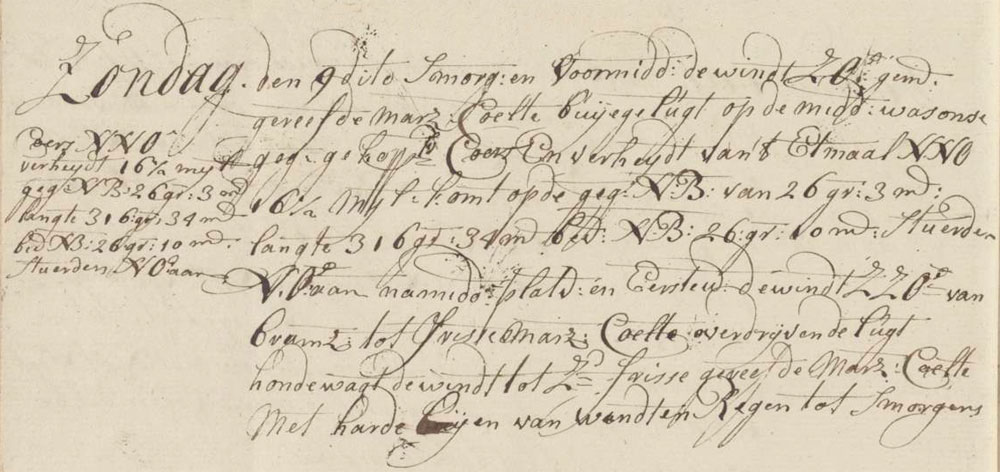 Zondag. den 9 dito Smorg: en Voormidd: de windt ZO: gemd.
gereefde Marz: Coelte buijege lugt op de midd: was onse
geg: gekopp: Coers En verheydt van't Etmaal NNO
16½ Myl: komt op de geg: NB: van 26 gr: 3 md:
langte 316 gr: 34 md bed: NB: 26: gr: 10 md: Stuerden
N.O. aan namidd: platd: en Eerstewd: de windt ZZO van
bramz: tot frisse Marz: Coelte overdryvende lugt
hondewagt de windt tot Z frisse gereefde Marz: Coelte
Met harde Buijen van windt en Regen tot Smorgens
Coers NNO
verheydt 16½ myl
geg: NB: 26 gr: 3 md
langte 316 gr: 34 md
bed NB: 26 gr: 10 md.
Stuerden NO aan